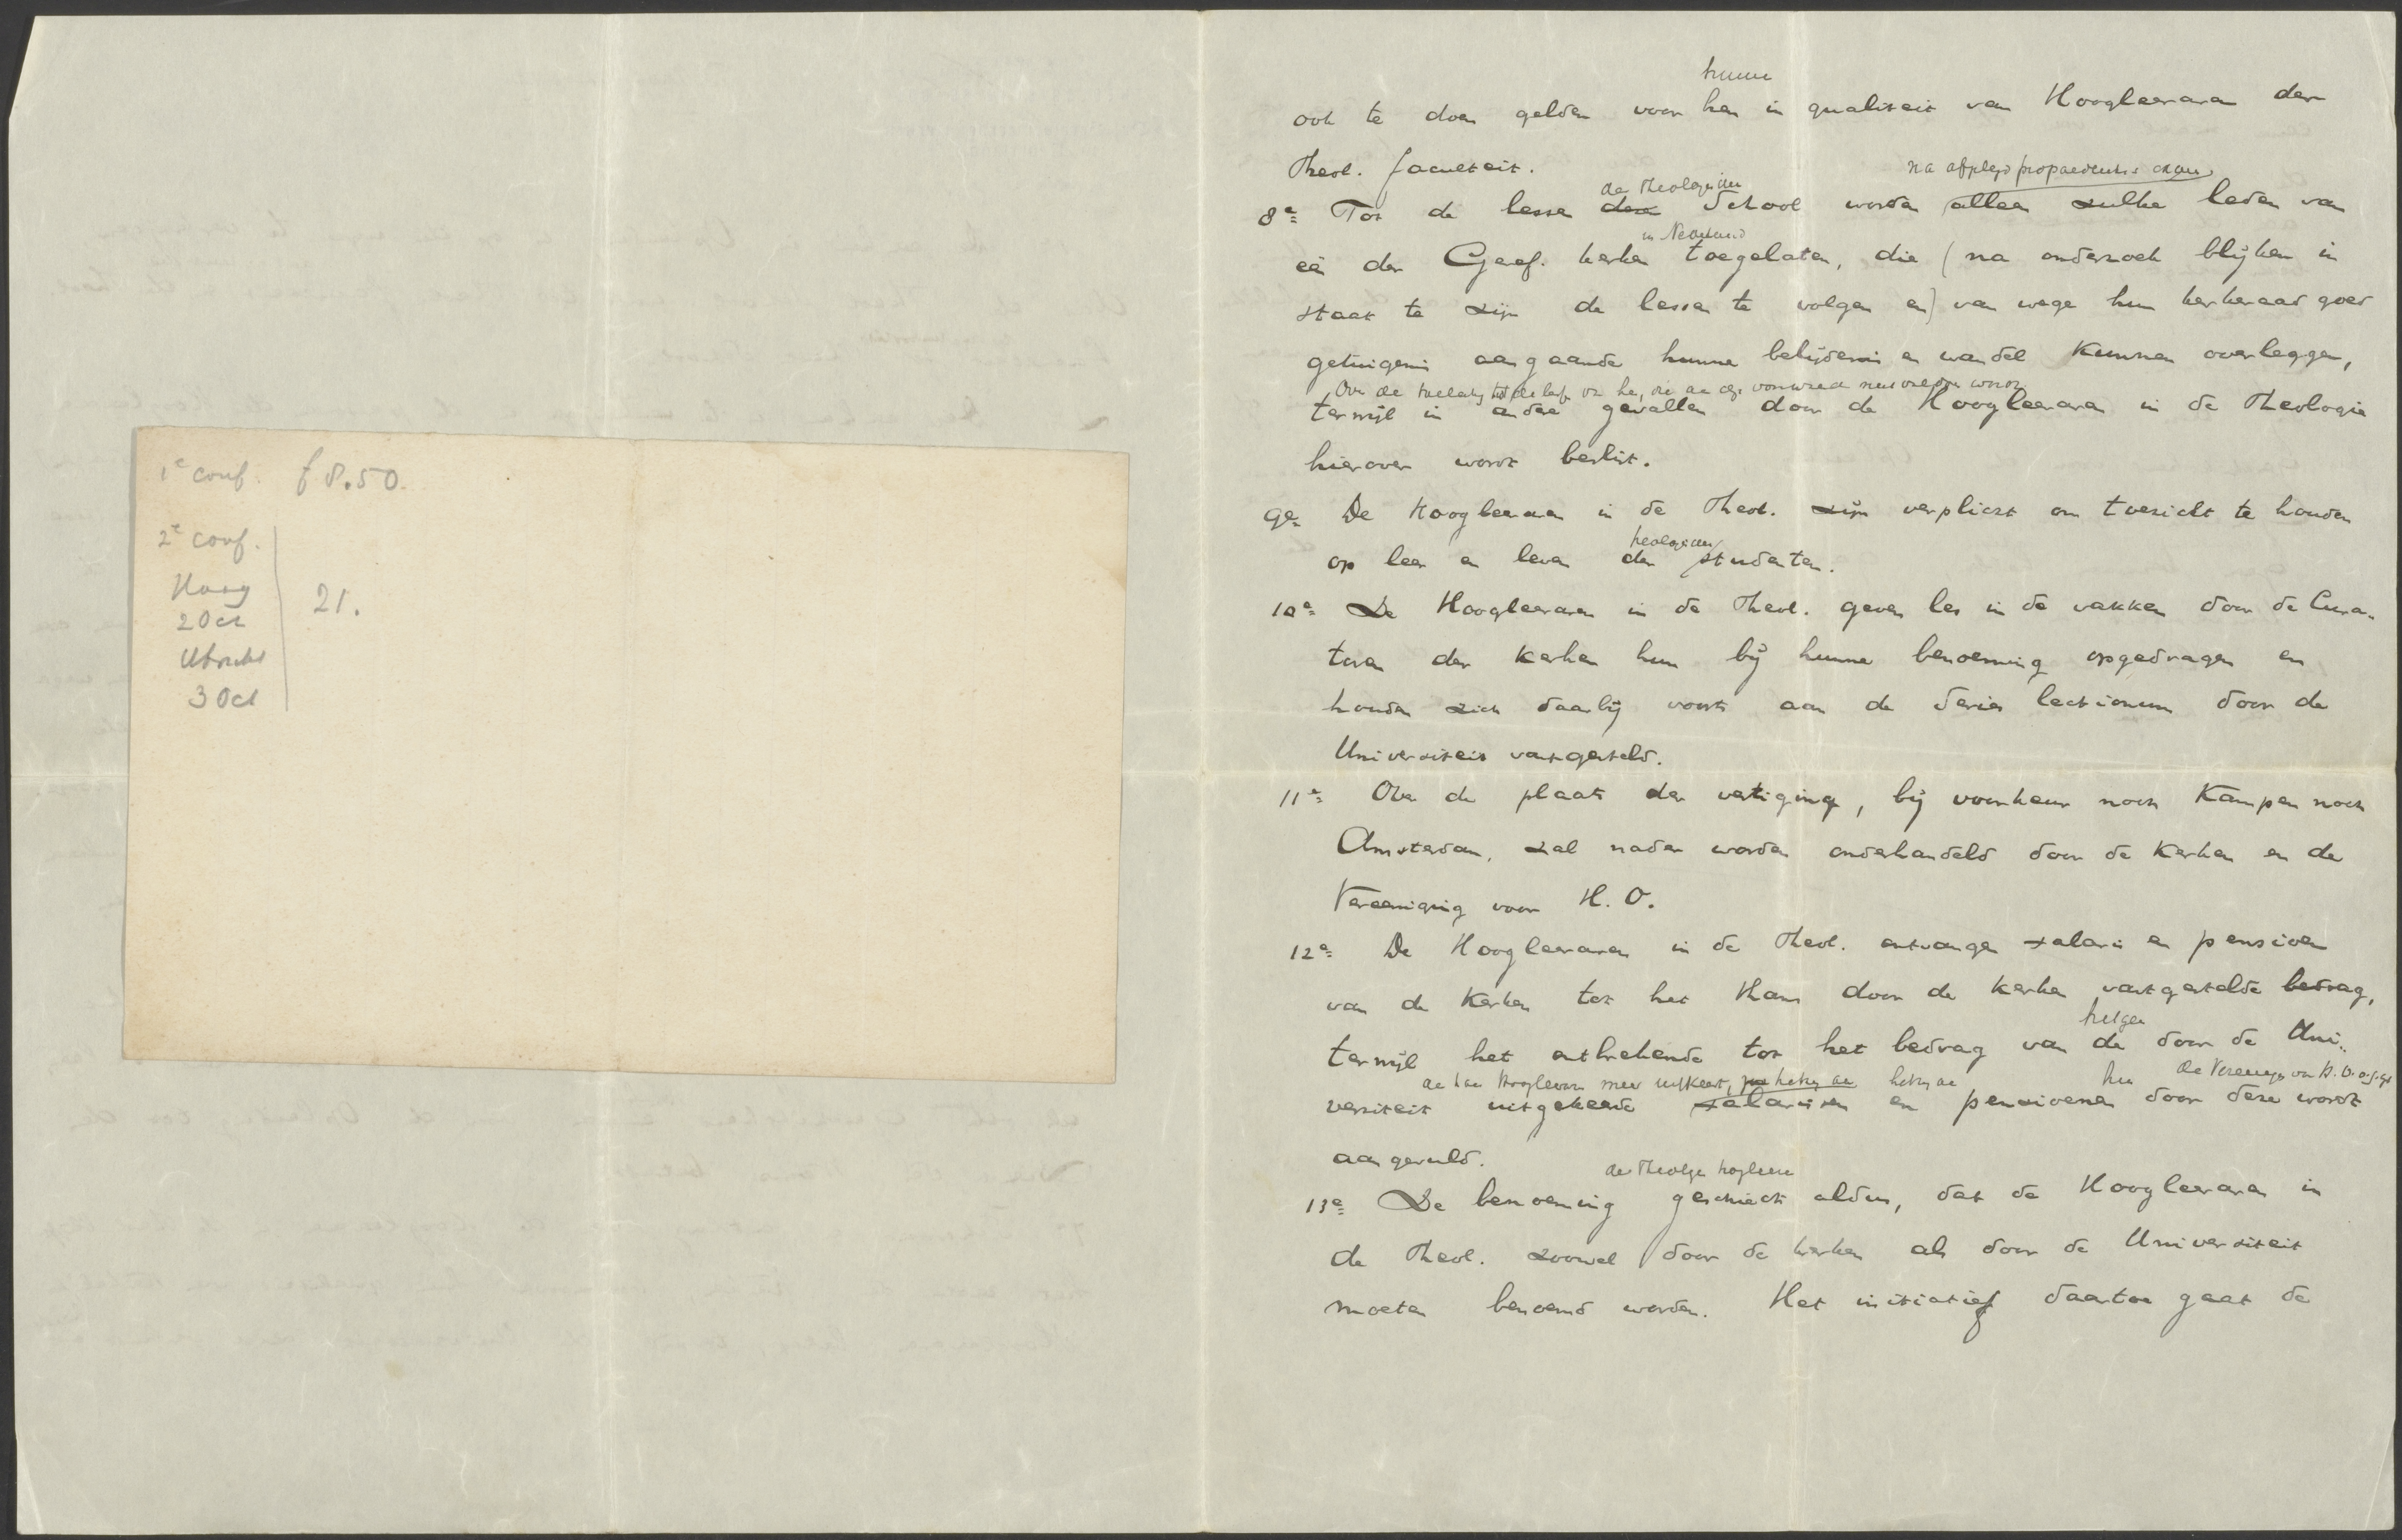 1e conf. f 8.50.
2e conf.
Haag
2 Oct
21.
Utrecht
3 Oct
hunne
ook te doen gelden voor hen in qualiteit van Hoogleeraren der
Theol. faculteit.
na afgelegd propaedeutisch examen
de Theologische
8e Tot de lessen dezer School worden alleen zulke leden van
in Nederland
een der Geref. kerken toegelaten, die (na onderzoek blijken in
staat te zijn de lessen te volgen en) van wege hun kerkeraad goed
getuigenis aangaande hunne belijdenis en wandel kunnen overleggen,
Over de toelating tot de lessen van hen, die aan deze voorwaarden niet voldoen wordt
terwijl in andere gevallen door de Hoogleeraren in de Theologie
hierover wordt beslist.
9e De Hoogleeraren in de Theol. zijn verplicht om toezicht te houden
theologische
op leer en leven der studenten.
10e De Hoogleeraren in de Theol. geven les in de vakken door de Cura-
toren der kerken hun bij hunne benoeming opgedragen en
houden zich daarbij voorts aan de Series lectionum door de
Universiteit vastgesteld.
11e Over de plaats der vestiging, bij voorkeur noch Kampen noch
Amsterdam, zal nader worden onderhandeld door de Kerken en de
Vereeniging voor H. O.
12e De Hoogleeraren in de Theol. ontvangen salaris en pensioen
van de Kerken tot het thans door de kerken vastgestelde bedrag,
hetgeen
terwijl het ontbrekende tot het bedrag van de door de Uni-
aan hare Hoogleeraren meer uitkeert, hetzij aan hetzij aan hun de Vereeniging voor H. O. o. g. g.
versiteit uitgekeerde salarissen en pensioenen door deze wordt
aangevuld.
der Theologische hoogleeraren
13e De benoeming geschiedt aldus, dat de Hoogleeraren in
de Theol. zoowel door de kerken als door de Universiteit
moeten benoemd worden. Het initiatief daartoe gaat de